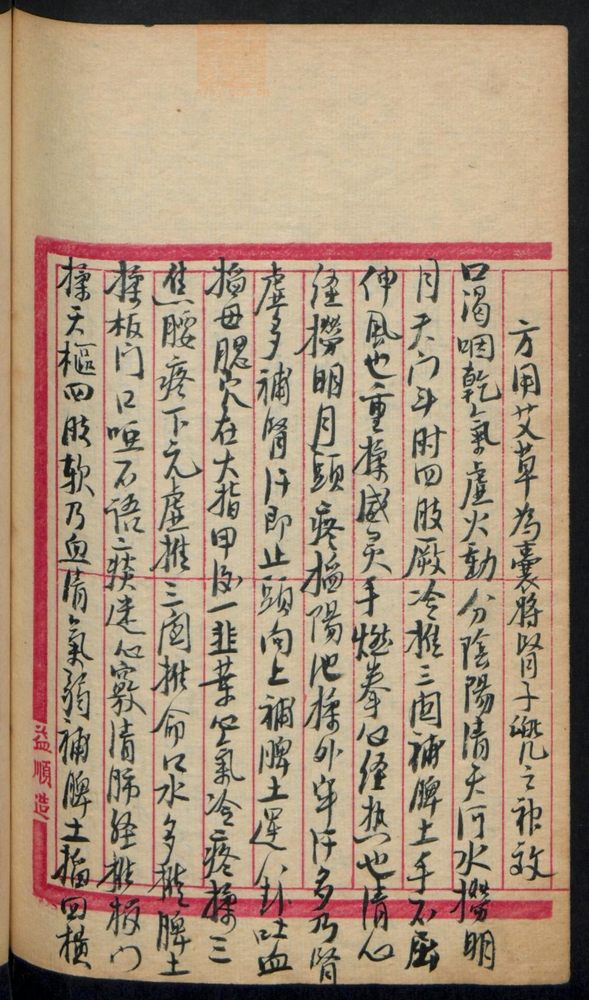 方用艾草為囊將腎子兜之神效
口渴咽乾氣虛火動分陰陽清天河水撈明
月天门斗肘四肢厥冷推三關補脾土手不屈
伸風也重揉威灵手燃拳心经热也清心
经撈明月頭疼掐陽池揉外牢汗多乃腎
虛多補腎汗即止頭向上補脾土運八卦吐血
掐母腮穴在大指甲後一韭葉心氣冷疼揉三
焦腰疼下元虛推三關推命口水多推脾土
揉板门口哑不语痰迷心竅清肺经推板门
揉天樞四肢软乃血情氣弱補脾土掐四横
益順造